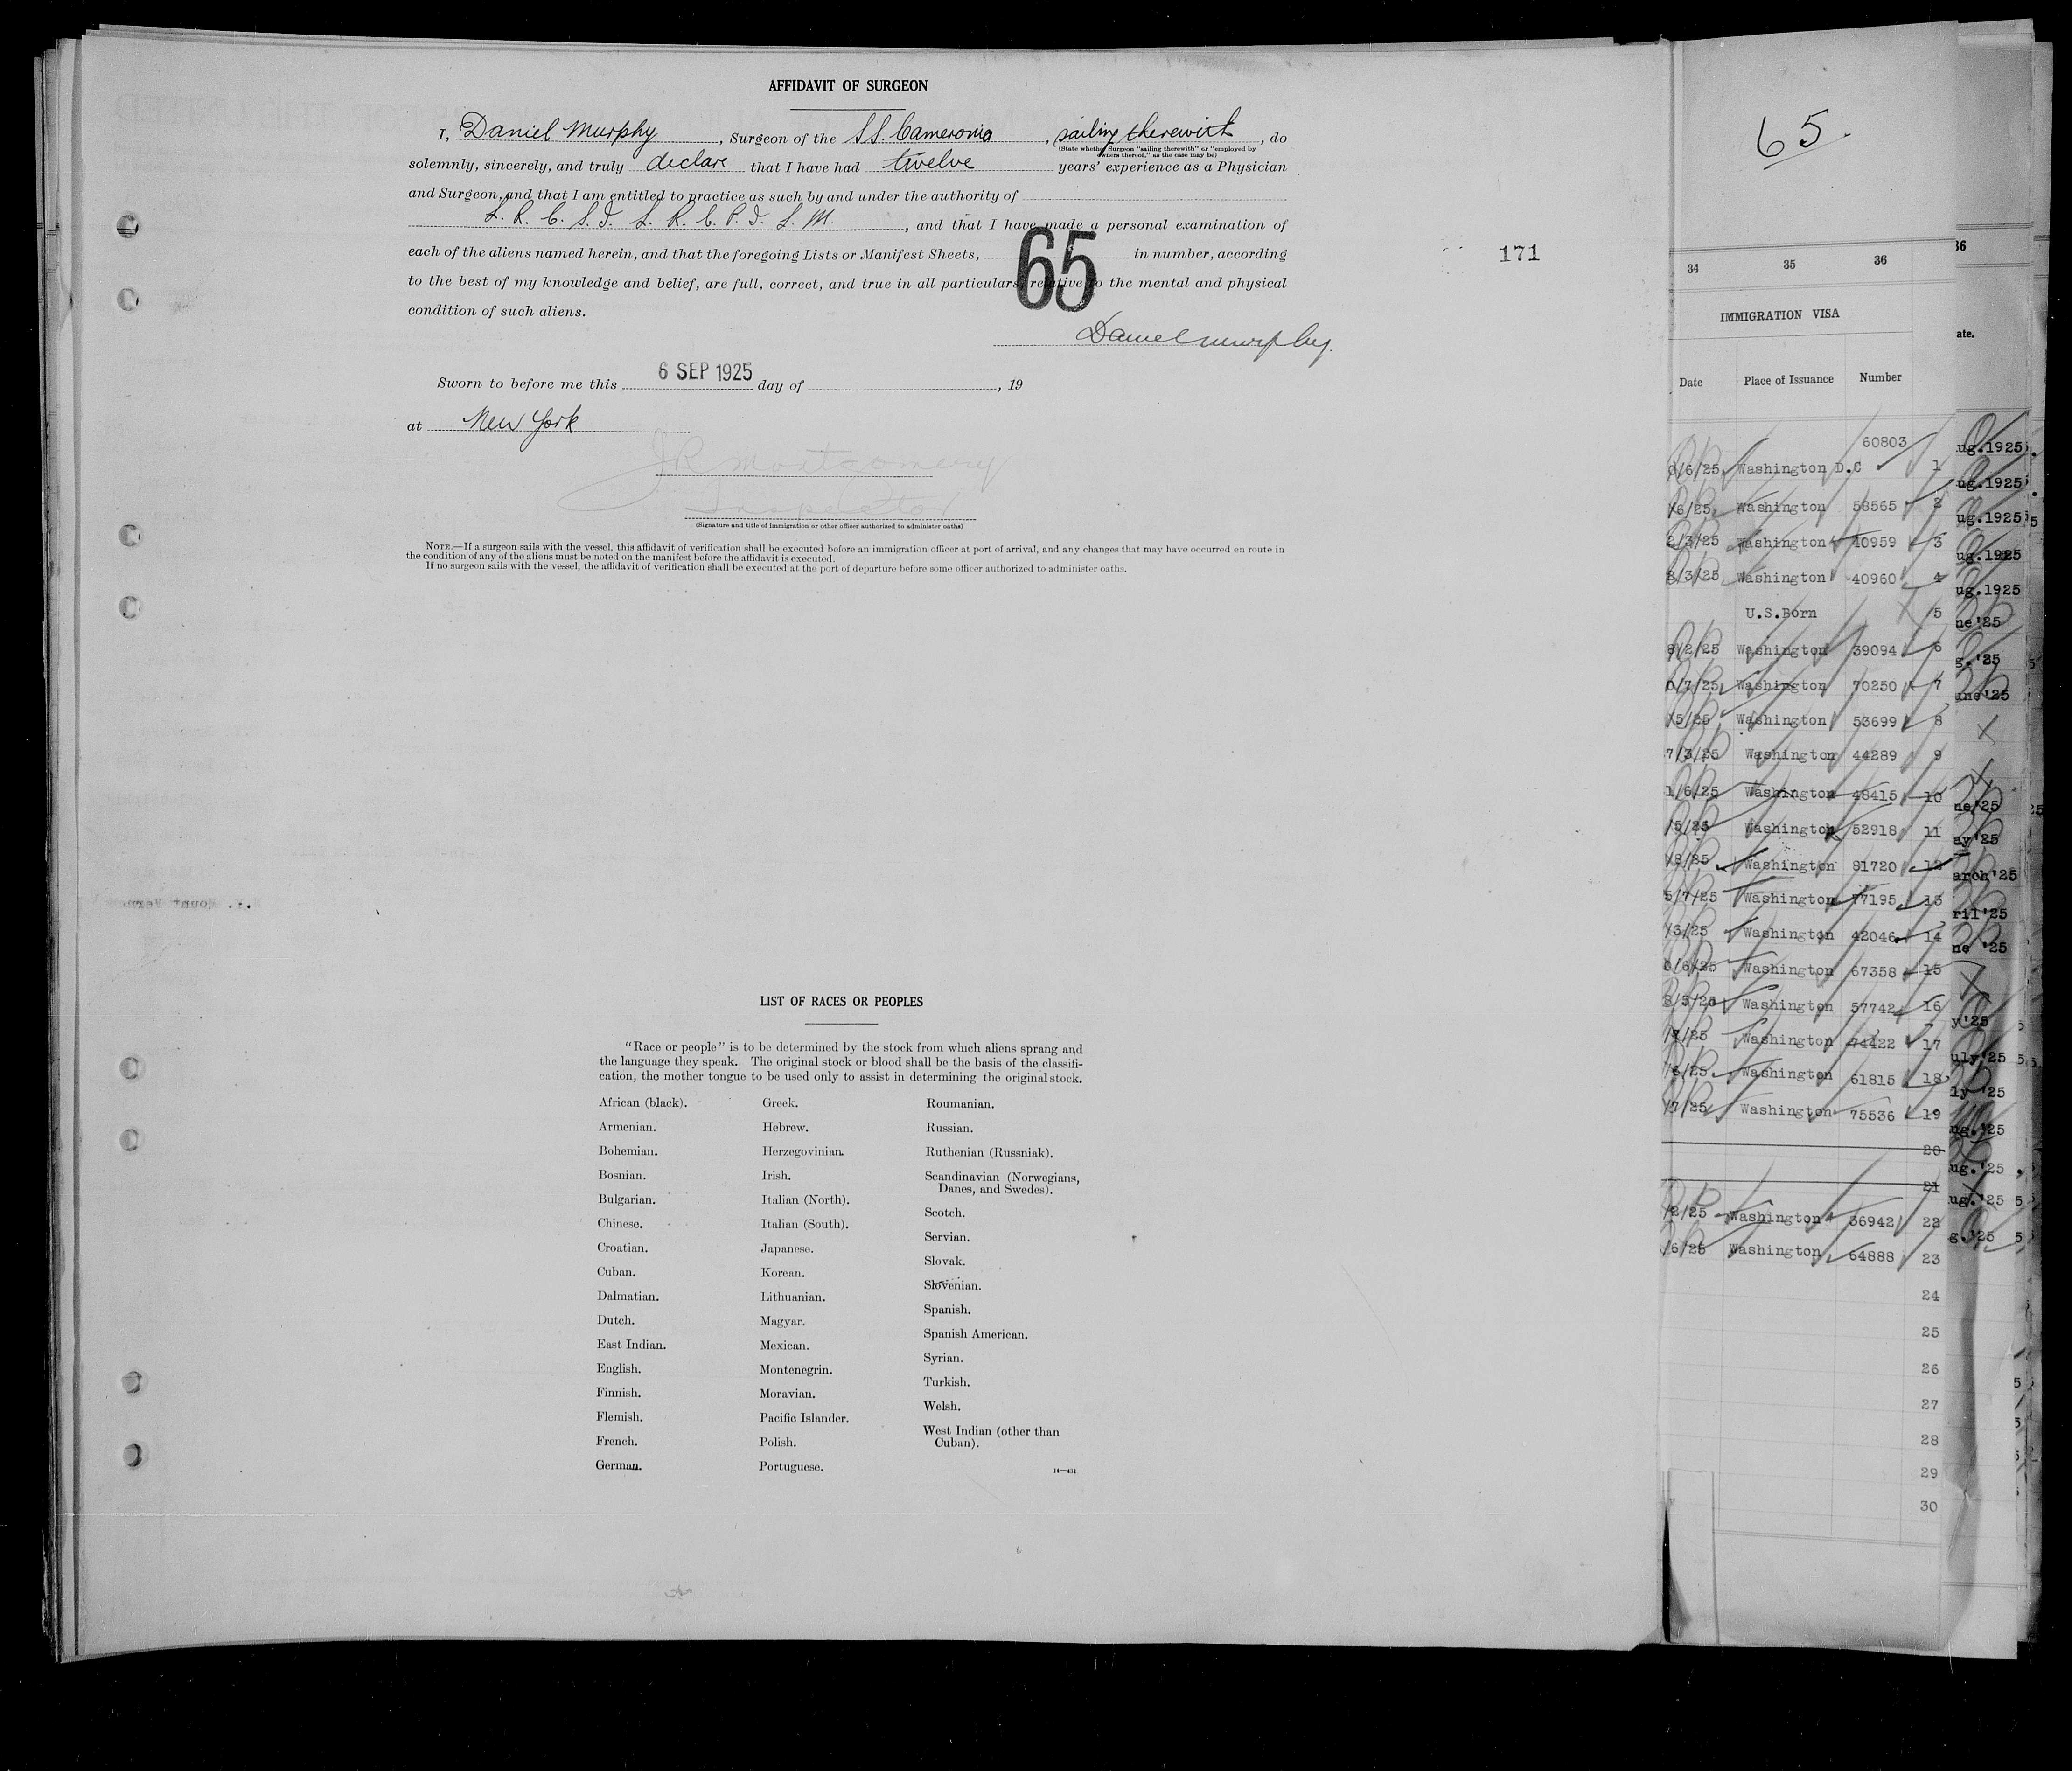 AFFIDAVIT OF SURGEON
I, Daniel Murphy, Surgeon of the S.S. Cameronia, sailing therewith, do
(State whether Surgeon "sailing therewith" or "employed by
owners thereof," as the case may be)
solemnly, sincerely, and truly declare that I have had twelve years' experience as a Physician
and Surgeon, and that I am entitled to practice as such by and under the authority of
L. R. C. S. I. L. R. C. P. I. L. M., and that I have made a personal examination of
each of the aliens named herein, and that the foregoing Lists or Manifest Sheets, 65 in number, according
to the best of my knowledge and belief, are full, correct, and true in all particulars relative to the mental and physical
condition of such aliens.
Daniel Murphy.
Sworn to before me this 6 SEP 1925 day of , 19
at New York
JR Montgomery
Inspector
(Signature and title of immigration or other officer authorized to administer oaths)
NOTE.—If a surgeon sails with the vessel, this affidavit of verification shall be executed before an immigration officer at port of arrival, and any changes that may have occurred en route in
the condition of any of the aliens must be noted on the manifest before the affidavit is executed.
If no surgeon sails with the vessel, the affidavit of verification shall be executed at the port of departure before some officer authorized to administer oaths.
171
LIST OF RACES OR PEOPLES
"Race or people" is to be determined by the stock from which aliens sprang and
the language they speak. The original stock or blood shall be the basis of the classifi-
cation, the mother tongue to be used only to assist in determining the original stock.
African (black).
Armenian.
Bohemian.
Bosnian.
Bulgarian.
Chinese.
Croatian.
Cuban.
Dalmatian.
Dutch.
East Indian.
English.
Finnish.
Flemish.
French.
German.
Greek.
Hebrew.
Herzegovinian.
Irish.
Italian (North).
Italian (South).
Japanese.
Korean.
Lithuanian.
Magyar.
Mexican.
Montenegrin.
Moravian.
Pacific Islander.
Polish.
Portuguese.
Roumanian.
Russian.
Ruthenian (Russniak).
Scandinavian (Norwegians,
Danes, and Swedes).
Scotch.
Servian.
Slovak.
Slovenian.
Spanish.
Spanish American.
Syrian.
Turkish.
Welsh.
West Indian (other than
Cuban).
14—431
65.
34 35 36
IMMIGRATION VISA
Date Place of Issuance Number
60803
/6/25 Washington D.C 1
/6/25 Washington 58565 2
2/3/25 Washington 40959 3
8/3/25 Washington 40960 4
U.S.Born 5
8/2/25 Washington 39094 6
0/7/25 Washington 70250 7
/5/25 Washington 53699 8
7/3/25 Washington 44289 9
1/6/25 Washington 48415 10
/5/25 Washington 52918 11
/8/25 Washington 81720 12
5/7/25 Washington 77195 13
/3/25 Washington 42046 14
/6/25 Washington 67358 15
8/5/25 Washington 57742 16
/25 Washington 74422 17
/6/25 Washington 61815 18
/7/25 Washington 75536 19
20
21
/2/25 Washington 36942 22
/6/25 Washington 64888 23
24
25
26
27
28
29
30
36
ate.
ug.1925
ug.1925
ug.1925
ug.1925
ug.1925
ne'25
g.'25
une'25
ne'25
ay'25
arch'25
ril'25
ne '25
y'25
uly'25
ly '25
ug.'25
ug.'25
ug.'25
g.'25